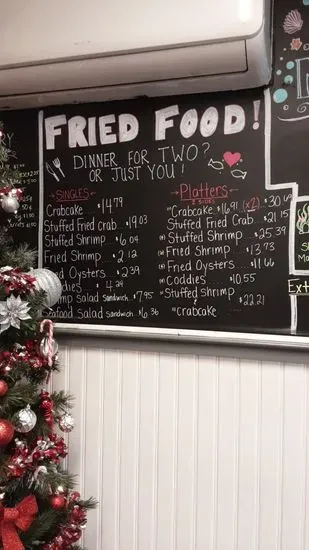 FRIED FOOD!
DINNER FOR TWO?
OR JUST YOU!
SINGLES
Crabcake $14.79
Stuffed Fried Crab $19.03
Stuffed Shrimp $6.04
Fried Shrimp $2.12
Oysters $2.39
4.24
Salad Sandwich $7.95
Seafood Salad Sandwich $6.36
Platters
2 SIDES
"Crabcake $16.91 (x2) $30.
Stuffed Fried Crab $21.15
Stuffed Shrimp $25.39
Fried Shrimp $13.73
Fried Oysters $11.66
Coddies $10.55
"Stuffed Shrimp
$22.21
"Crabcake
Ext